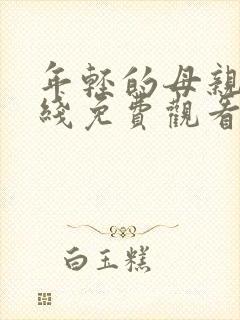 年輕的母親
綫免費觀看
白玉糕